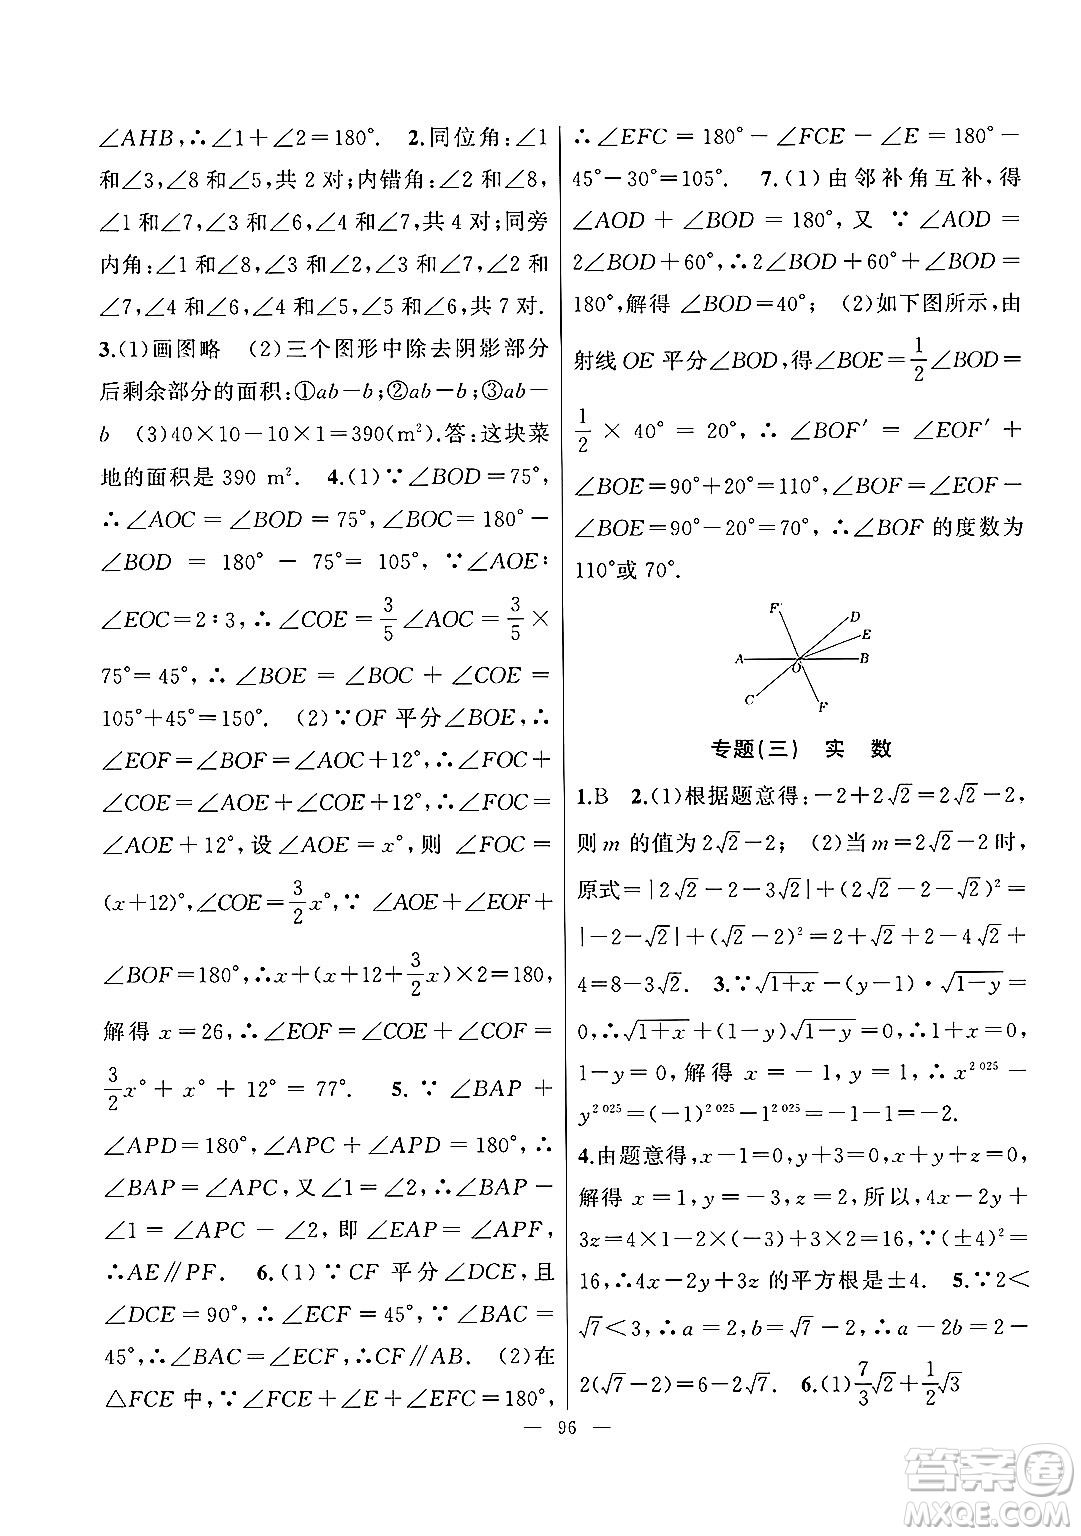 ∠AHB,∴∠1+∠2=180°. 2.同位角:∠1
和∠3,∠8和∠5,共2对;内错角:∠2和∠8,
∠1和∠7,∠3和∠5,∠4和∠7,共4对;同旁
内角:∠1和∠8,∠3和∠4,∠1和∠7,∠2和
∠7,∠4和∠5,∠1和∠5,∠2和∠5,共7对.
3.(1)画图略 (2)三个图形中除去阴影部分
后剩余部分的面积:①ab-b;②ab-b;③ab-
b (3)40×10-10×1=390(m²).答:这块菜
地的面积是390 m². 4.(1)∵∠BOD=75°,
∴∠AOC=∠BOD=75°,∠BOC=180°-
∠BOD = 180° - 75° = 105°, ∵∠AOE∶
∠EOC=2∶3,∴∠COE=3/5∠AOC=3/5×
75°=45°,∴∠BOE=∠BOC+∠COE=
105°+45°=150°. (2)∵OF平分∠BOE,∴
∠EOF=∠BOF=∠AOC+12°,∴∠FOC+
∠COE=∠AOE+∠COE+12°,∴∠FOC=
∠AOE+12°,设∠AOE=x°,则∠FOC=
(x+12)°,∠COE=3/2x°,∵∠AOE+∠EOF+
∠BOF=180°,∴x+(x+12+3/2x)×2=180,
解得x=26,∴∠EOF=∠COE+∠COF=
3/2x°+x°+12°=77°. 5.∵∠BAP+
∠APD=180°,∠APC+∠APD=180°,∴
∠BAP=∠APC,又∠1=∠2,∴∠BAP-
∠1=∠APC-∠2,即∠EAP=∠APF,
∴AE∥PF. 6.(1)∵CF平分∠DCE,且
∠DCE=90°,∴∠ECF=45°,∵∠BAC=
45°,∴∠BAC=∠ECF,∴CF∥AB. (2)在
△FCE中,∵∠FCE+∠E+∠EFC=180°,
∴∠EFC=180°-∠FCE-∠E=180°-
45°-30°=105°. 7.(1)由邻补角互补,得
∠AOD+∠BOD=180°,又∵∠AOD=
2∠BOD+60°,∴2∠BOD+60°+∠BOD=
180°,解得∠BOD=40°; (2)如下图所示,由
射线OE平分∠BOD,得∠BOE=1/2∠BOD=
1/2×40°=20°,∴∠BOF′=∠EOF′+
∠BOE=90°+20°=110°,∠BOF=∠EOF-
∠BOE=90°-20°=70°,∴∠BOF的度数为
110°或70°.
F′
D
E
A
O
B
C
F
专题(三) 实 数
1.B 2.(1)根据题意得:-2+2√2=2√2-2,
则m的值为2√2-2; (2)当m=2√2-2时,
原式=|2√2-2-3√2|+(2√2-2-√2)²=
|-2-√2|+(√2-2)²=2+√2+2-4√2+
4=8-3√2. 3.∵√(1+x)-(y-1)·√(1-y)=
0,∴√(1+x)+(1-y)√(1-y)=0,∴1+x=0,
1-y=0,解得x=-1,y=1,∴x^2 025-
y^2 025=(-1)^2 025-1^2 025=-1-1=-2.
4.由题意得,x-1=0,y+3=0,x+y+z=0,
解得x=1,y=-3,z=2,所以,4x-2y+
3z=4×1-2×(-3)+3×2=16,∵(±4)²=
16,∴4x-2y+3z的平方根是±4. 5.∵2<
√7<3,∴a=2,b=√7-2,∴a-2b=2-
2(√7-2)=6-2√7. 6.(1)7/3√2+1/2√3
— 96 —
答案圈
MXQE.COM